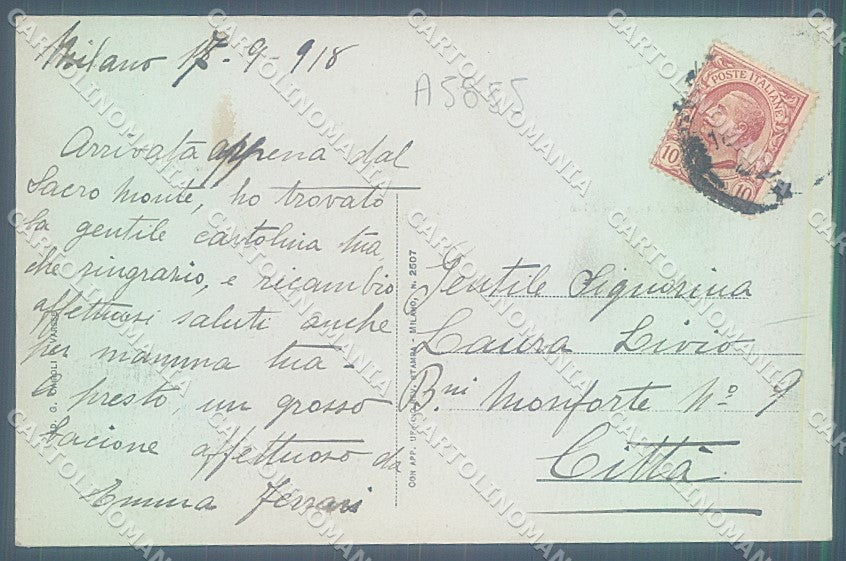 Milano 17-9-918
A5655
POSTE ITALIANE
10 10
Arrivata appena dal
Sacro Monte, ho trovato
la gentile cartolina tua
che ringrazio, e ricambio
affettuosi saluti anche
per mamma tua -
A presto, un grosso
bacione affettuoso da
Emma Ferrari
CON APP. UFF. REV. STAMPA - MILANO, N. 2507
Gentile Signorina
Laura Livio
B.ni Monforte No 9
Città
CARTOLINOMANIA